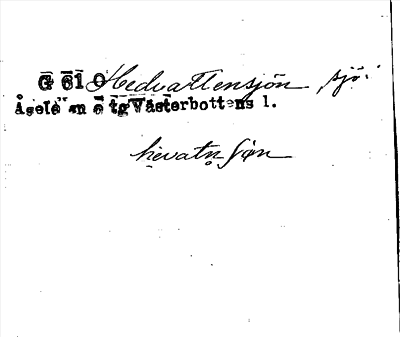 G 61 0 Hedvattensjön, sjö.
Åsele Västerbottens l.
hevatn sjön